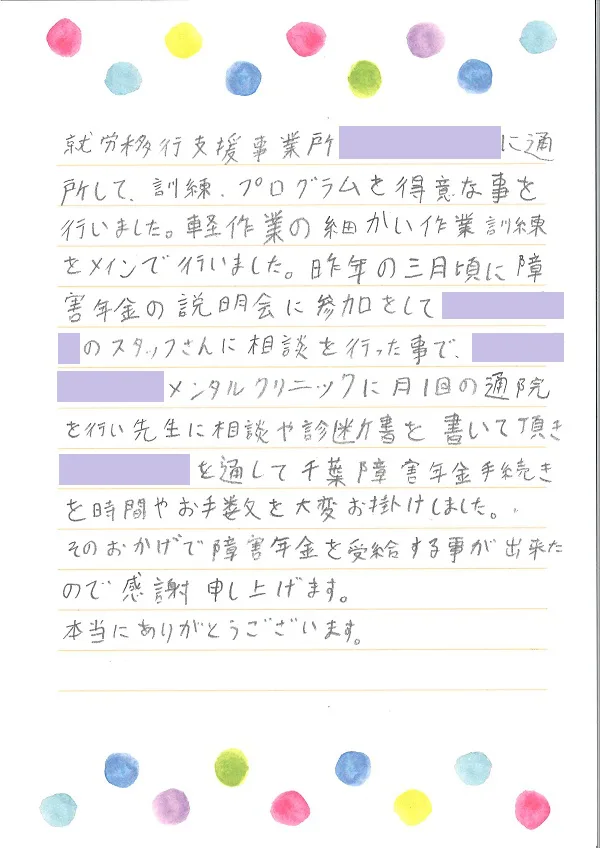 就労移行支援事業所に通
所して、訓練、プログラムを得意な事を
行いました。軽作業の細かい作業訓練
をメインで行いました。昨年の三月頃に障
害年金の説明会に参加をして
のスタッフさんに相談を行った事で、
メンタルクリニックに月1回の通院
を行い先生に相談や診断書を書いて頂き
を通して千葉障害年金手続き
を時間やお手数を大変お掛けしました。
そのおかげで障害年金を受給する事が出来た
ので感謝申し上げます。
本当にありがとうございます。